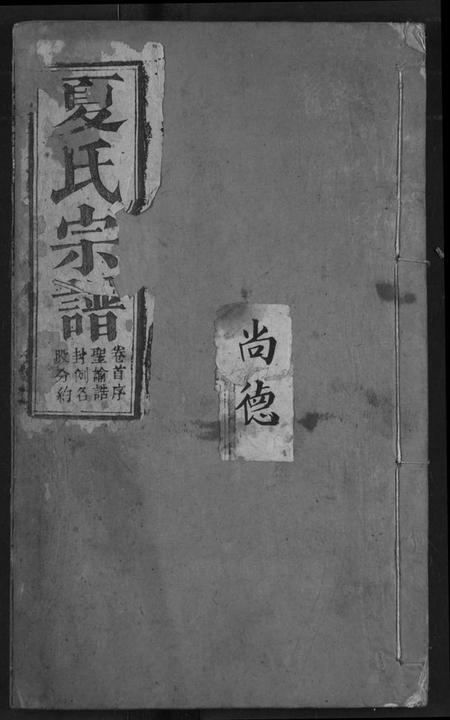 尚德
夏氏宗譜
卷首序
聖諭誥
封例名
股分約